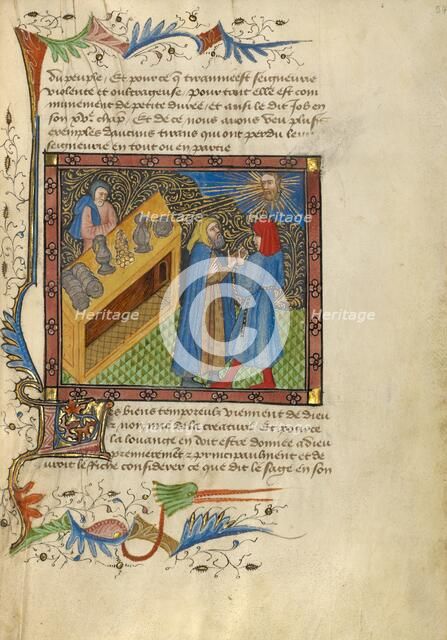 du peuple / Et pource q̄ tirannie est seigneurie
violente et oultrageuse / pour tant elle est com
munement de petite duree / et ainsi le dit Job en
son chap̄ / Et de ce nous auons veu plusrs
exemples daucuns tirans qui ont perdu leur
seigneurie en tout ou en partie
Les biens temporeulx viennent de dieu
z non mie de la creature Et pource
la louange en doit estre donnee a dieu
premierement z principaulment et de
uroit le riche considerer ce que dit le sage en son
Heritage
Heritage
Heritage
Heritage
Heritage